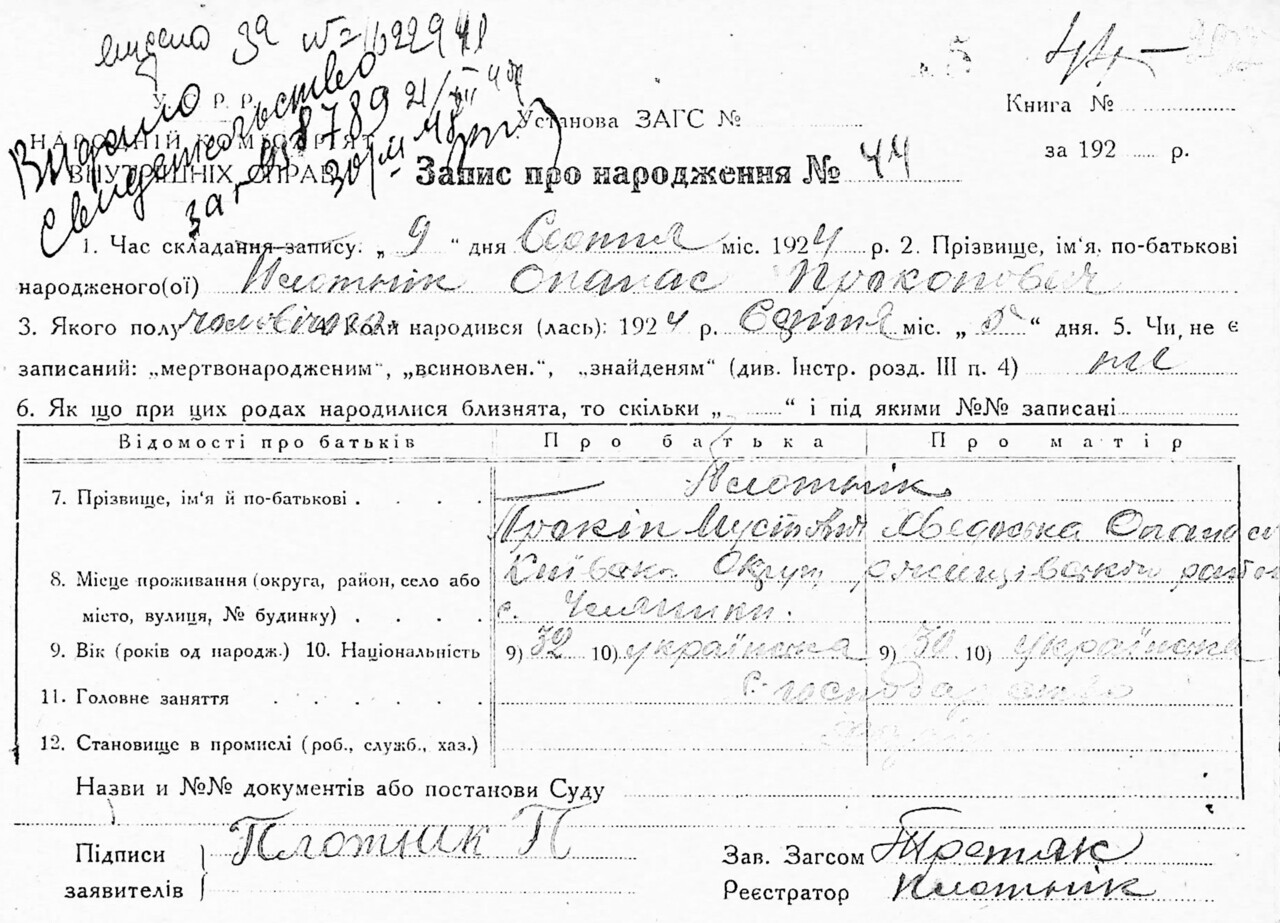 за № 1622941
Видано
свидетельство
за № 958789 21/VII 48р
У. С. Р. Р.
НАРОДНІЙ КОМІСАРІЯТ
ВНУТРІШНІХ СПРАВ
5
44 —
Установа ЗАГС №
Книга №
за 192 р.
Запис про народження № 44
1. Час складання запису: „ 9 “ дня Сотня міс. 1924 р. 2. Прізвище, ім'я, по-батькові
народженого(ої) Плотнік Опанас Прокопович
3. Якого полу чоловічого 4. Коли народився (лась): 1924 р. Сотня міс. „ 5 “ дня. 5. Чи, не є
записаний: „мертвонародженим“, „всиновлен.“, „знайденям“ (див. Інстр. розд. III п. 4) ні
6. Як що при цих родах народилися близнята, то скільки „ “ і під якими №№ записані
Відомості про батьків Про батька Про матір
7. Прізвище, ім'я й по-батькові . . . . Плотнік
Прокіп Хведоська Опанасов
8. Місце проживання (округа, район, село або Київська Округ район
місто, вулиця, № будинку) . . . . с.
9. Вік (років од народж.) 10. Національність 9) 32 10) українська 9) 30 10) українська
11. Головне заняття . . . . . . с. господарство
12. Становище в промислі (роб., служб., хаз.)
Назви и №№ документів або постанови Суду
Підписи
заявителів
Плотник П
Зав. Загсом Третяк
Реєстратор Плотнік